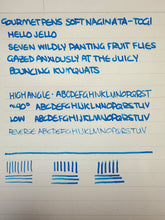 GOURMET PENS SOFT NAGINATA-TOGI
HELLO JELLO
SEVEN WILDLY PANTING FRUIT FLIES
GAZED ANXIOUSLY AT THE JUICY
BOUNCING KUMQUATS
HIGH ANGLE: ABCDEFGHIJKLMNOPQRSTUV
~40° ABCDEFGHIJKLMNOPQRSTUV
LOW ABCDEFGHIJKLMNOPQRSTUV
REVERSE ABCDEFGHIJKLMNOPQRSTUV